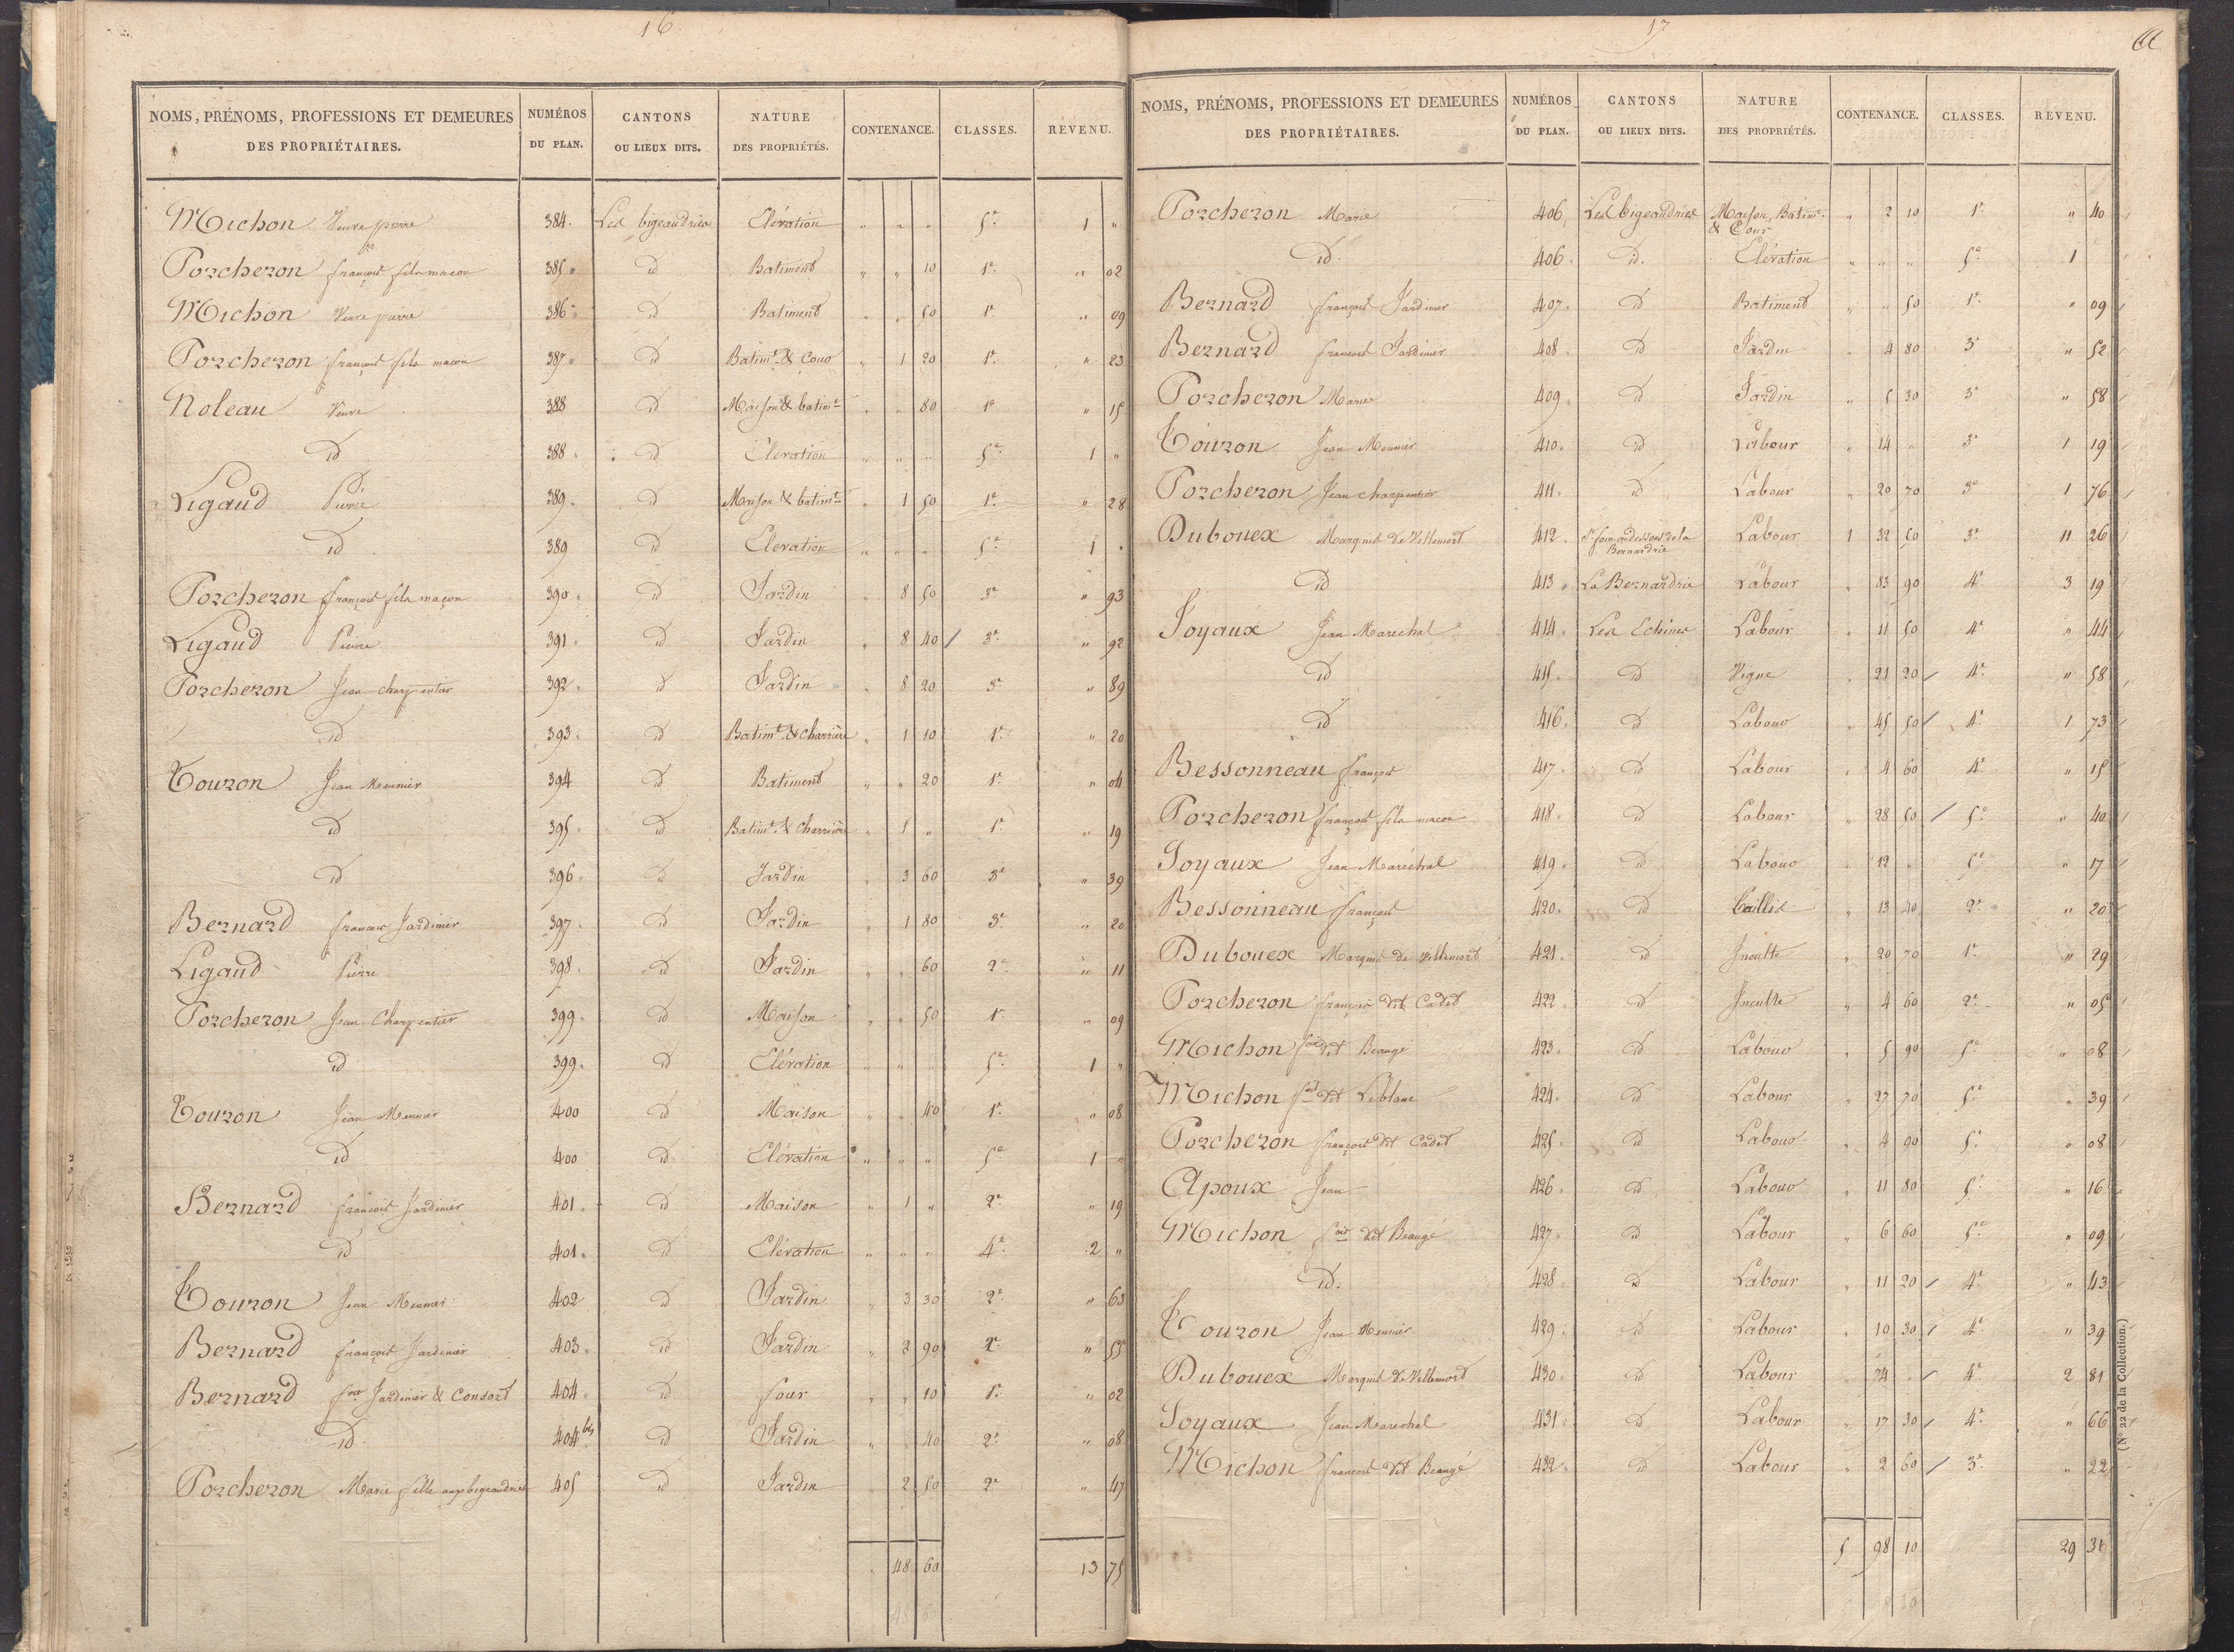 16
NOMS, PRÉNOMS, PROFESSIONS ET DEMEURES DES PROPRIÉTAIRES. NUMÉROS DU PLAN. CANTONS OU LIEUX DITS. NATURE DES PROPRIÉTÉS. CONTENANCE. CLASSES. REVENU.
Michon Veuve pierre 384. Les bigeaudries Elévation " " " 5e 1 "
Porcheron françois fils maçon 385 " id Batiment " " 10 1e " 02
Michon Veuve pierre 386 " id Batiment " " 50 1e " 09
Porcheron françois fils maçon 387 " id Batimt & Cour " 1 20 1e " 23
Noleau Veuve 388 id Maison & batimt " " 80 1e " 15
id 388 " id Elevation " " " 5e 1 "
Ligaud Pierre 389 " id Maison & batimt " 1 50 1e " 28
id 389 id Elevation " " " 5e 1 "
Porcheron françois fils maçon 390 " id Jardin " 8 50 3e " 93
Ligaud Pierre 391 " id Jardin " 8 40 / 3e " 92
Porcheron Jean charpentier 392 " id Jardin " 8 20 3e " 89
id 393 " id Batimt & charrière " 1 10 1e " 20
Touron Jean Meunier 394 id Batiment " " 20 1e " 04
id 395 " id Batimt & Charrière " 1 " 1e " 19
id 396 " id Jardin " 3 60 3e " 39
Bernard françois Jardinier 397 " id Jardin " 1 80 3e " 20
Ligaud Pierre 398 " id Jardin " " 60 2e " 11
Porcheron Jean Charpentier 399 " id Maison " " 50 1e " 09
id 399 " id Elévation " " " 5e 1 "
Touron Jean Meunier 400 id Maison " " 40 1e " 08
id 400 id Elévation " " " 5e 1 "
Bernard françois Jardinier 401 " id Maison " 1 " 2e " 19
id 401 " id Elévation " " " 4e 2 "
Touron Jean Meunier 402 id Jardin " 3 30 2e " 63
Bernard françois Jardinier 403 " id Jardin " 2 90 2e " 55
Bernard fois Jardinier & Consort 404 " id four " " 10 1e " 02
id. 404 bis id Jardin " " 40 2e " 08
Porcheron Marie fille aux bigeaudries 405 id Jardin " 2 50 2e " 47
" 48 60 13 75
17
NOMS, PRÉNOMS, PROFESSIONS ET DEMEURES DES PROPRIÉTAIRES. NUMÉROS DU PLAN. CANTONS OU LIEUX DITS. NATURE DES PROPRIÉTÉS. CONTENANCE. CLASSES. REVENU.
Porcheron Marie 406 Les bigeaudries Maison, Batimt & Cour " 2 10 1e " 40
id. 406 " id. Elévation " " " 5e 1
Bernard françois Jardinier 407 " id Batiment " " 50 1e " 09
Bernard françois Jardinier 408 " id Jardin " 4 80 3e " 52
Porcheron Marie 409 " id Jardin " 5 30 3e " 58
Touron Jean Meunier 410 " id Labour " 14 " 3e 1 19
Porcheron Jean charpentier 411 " id Labour " 20 70 3e 1 76
Dubouex Marquis de Villemort 412 " audessous de la Bernardrie Labour 1 32 50 3e 11 26
id 413 " La Bernardrie Labour " 83 90 4e 3 19
Joyaux Jean Marechal 414 " Les Echines Labour " 11 50 4e " 44
id 415 " id Vigne " 21 20 / 4e " 58
id 416 " id Labour " 45 50 / 4e 1 73
Bessonneau françois 417 " id Labour " 4 60 4e " 15
Porcheron françois fils maçon 418 " id Labour " 28 50 / 5e " 40
Joyaux Jean Maréchal 419 " id Labour " 12 " 5e " 17
Bessonneau françois 420 " id Taillis " 13 40 2e " 20
Dubouex Marquis de Villemort 421 " id Inculte " 20 70 1e " 29
Porcheron françois dit Cadet 422 " id Inculte " 4 60 2e " 05
Michon fois dit Beaugé 423 " id Labour " 5 90 5e " 08
Michon fois dit Leblanc 424 " id Labour " 27 70 5e " 39
Porcheron françois dit Cadet 425 " id Labour " 4 90 5e " 08
Apoux Jean 426 " id Labour " 11 80 5e " 16
Michon fois dit Beaugé 427 " id Labour " 6 60 5e " 09
id. 428 id Labour " 11 20 / 4e " 43
Touron Jean Meunier 429 " id Labour " 10 30 / 4e " 39
Dubouex Marquis de Villemort 430 " id Labour " 74 " / 4e 2 81
Joyaux Jean Marechal 431 " id Labour " 17 30 / 4e " 66
Michon françois dit Beaugé 432 " id Labour " 2 60 / 3e " 22
5 98 10 29 31
(N° 22 de la Collection.)